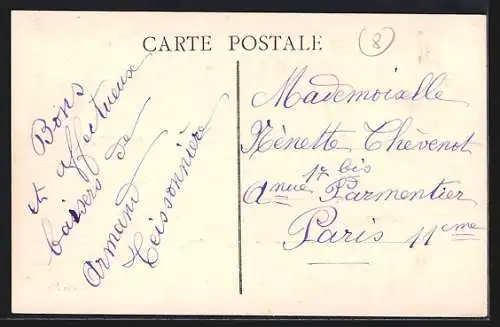 CARTE POSTALE
8
Bons
et affectueux
baisers de
Armand
Teissonnière
Mademoiselle
Nénette Thèvenot
17 bis
Anue Parmentier
Paris 11cme